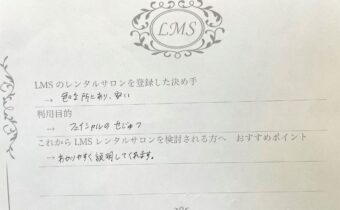 LMS
LMSのレンタルサロンを登録した決め手
→ 色々な所にあり、安い
利用目的
→ フェイシャルのせじゅつ
これからLMSレンタルサロンを検討される方へ おすすめポイント
→ わかりやすく説明してくれます。